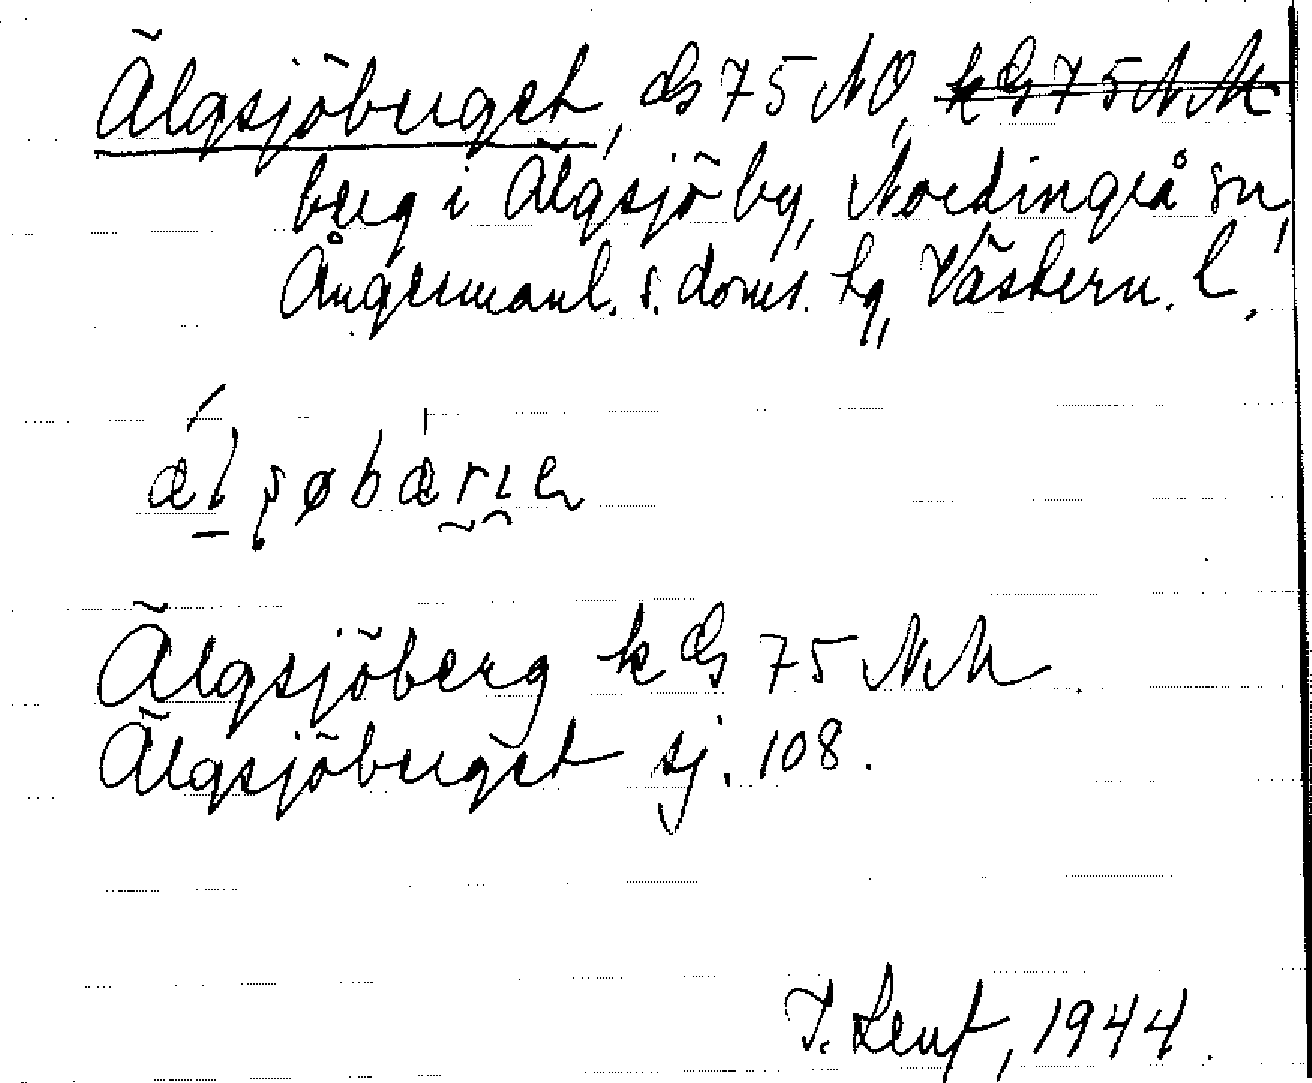 Älgsjöberget, Gs 75 NO, k Gs 75 N.M
berg i Älgsjö by, Nordingrå sn,
Ångermanl. s. doms. hg, Västern. l.
Älgsjöberg k Gs 75 N.M
Älgsjöberget sj. 108.
1944.